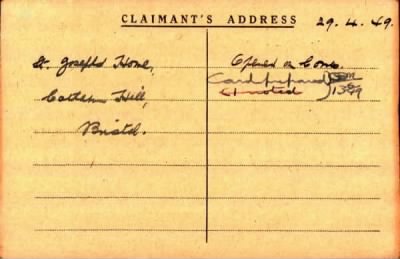 CLAIMANT'S ADDRESS 29.4.49.
St. Joseph's Home,
Cotham Hill,
Bristol.
Opened on Corre.
Card prepared
& noted